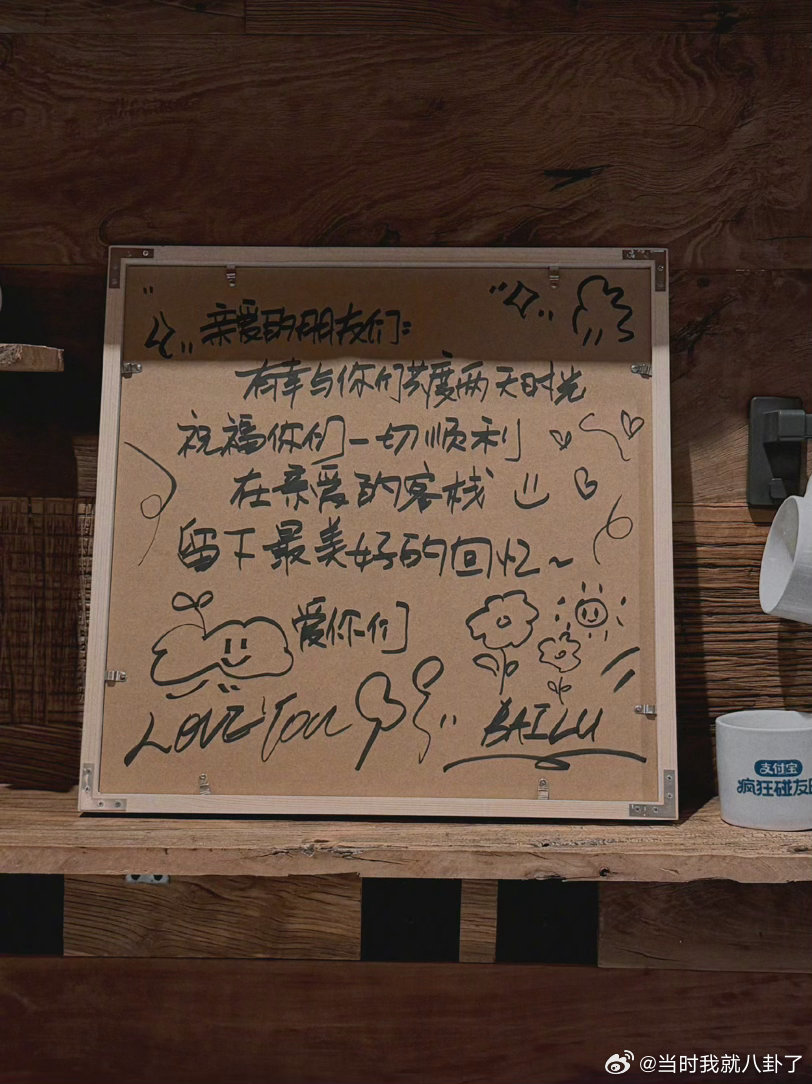 亲爱的朋友们:
有幸与你们共度两天时光
祝福你们一切顺利
在亲爱的客栈
留下最美好的回忆~
爱你们
LOVE You
BAILU
支付宝
疯狂碰友
@当时我就八卦了